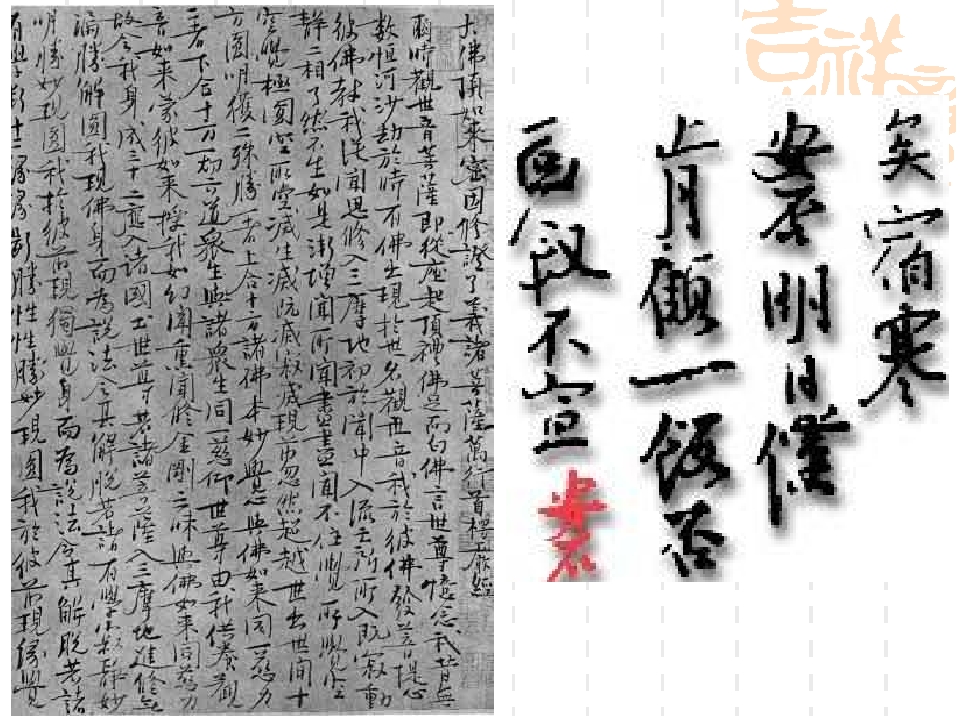 吉祥
大佛頂如來密因修證了義諸菩薩萬行首楞嚴經
爾時觀世音菩薩即從座起頂禮佛足而白佛言世尊憶念我昔無
數恒河沙劫於時有佛出現於世名觀世音我於彼佛發菩提心
彼佛教我從聞思修入三摩地初於聞中入流亡所所入既寂動
靜二相了然不生如是漸增聞所聞盡盡聞不住覺所覺空
空覺極圓空所空滅生滅既滅寂滅現前忽然超越世出世間十
方圓明獲二殊勝一者上合十方諸佛本妙覺心與佛如來同一慈力
二者下合十方一切六道衆生與諸衆生同一悲仰世尊由我供養觀
音如來蒙彼如來授我如幻聞熏聞修金剛三昧與佛如來同慈力
故令我身成三十二應入諸國土世尊若諸菩薩入三摩地進修無
漏勝解圓我現佛身而為說法令其解脫若諸有學寂靜妙
明勝妙現圓我於彼前現獨覺身而為說法令其解脫若諸
有學斷十二緣緣斷勝性勝性勝妙現圓我於彼前現緣覺
矣宿寒
安否明日僅
肯顧一飯否
面敘不宣安石